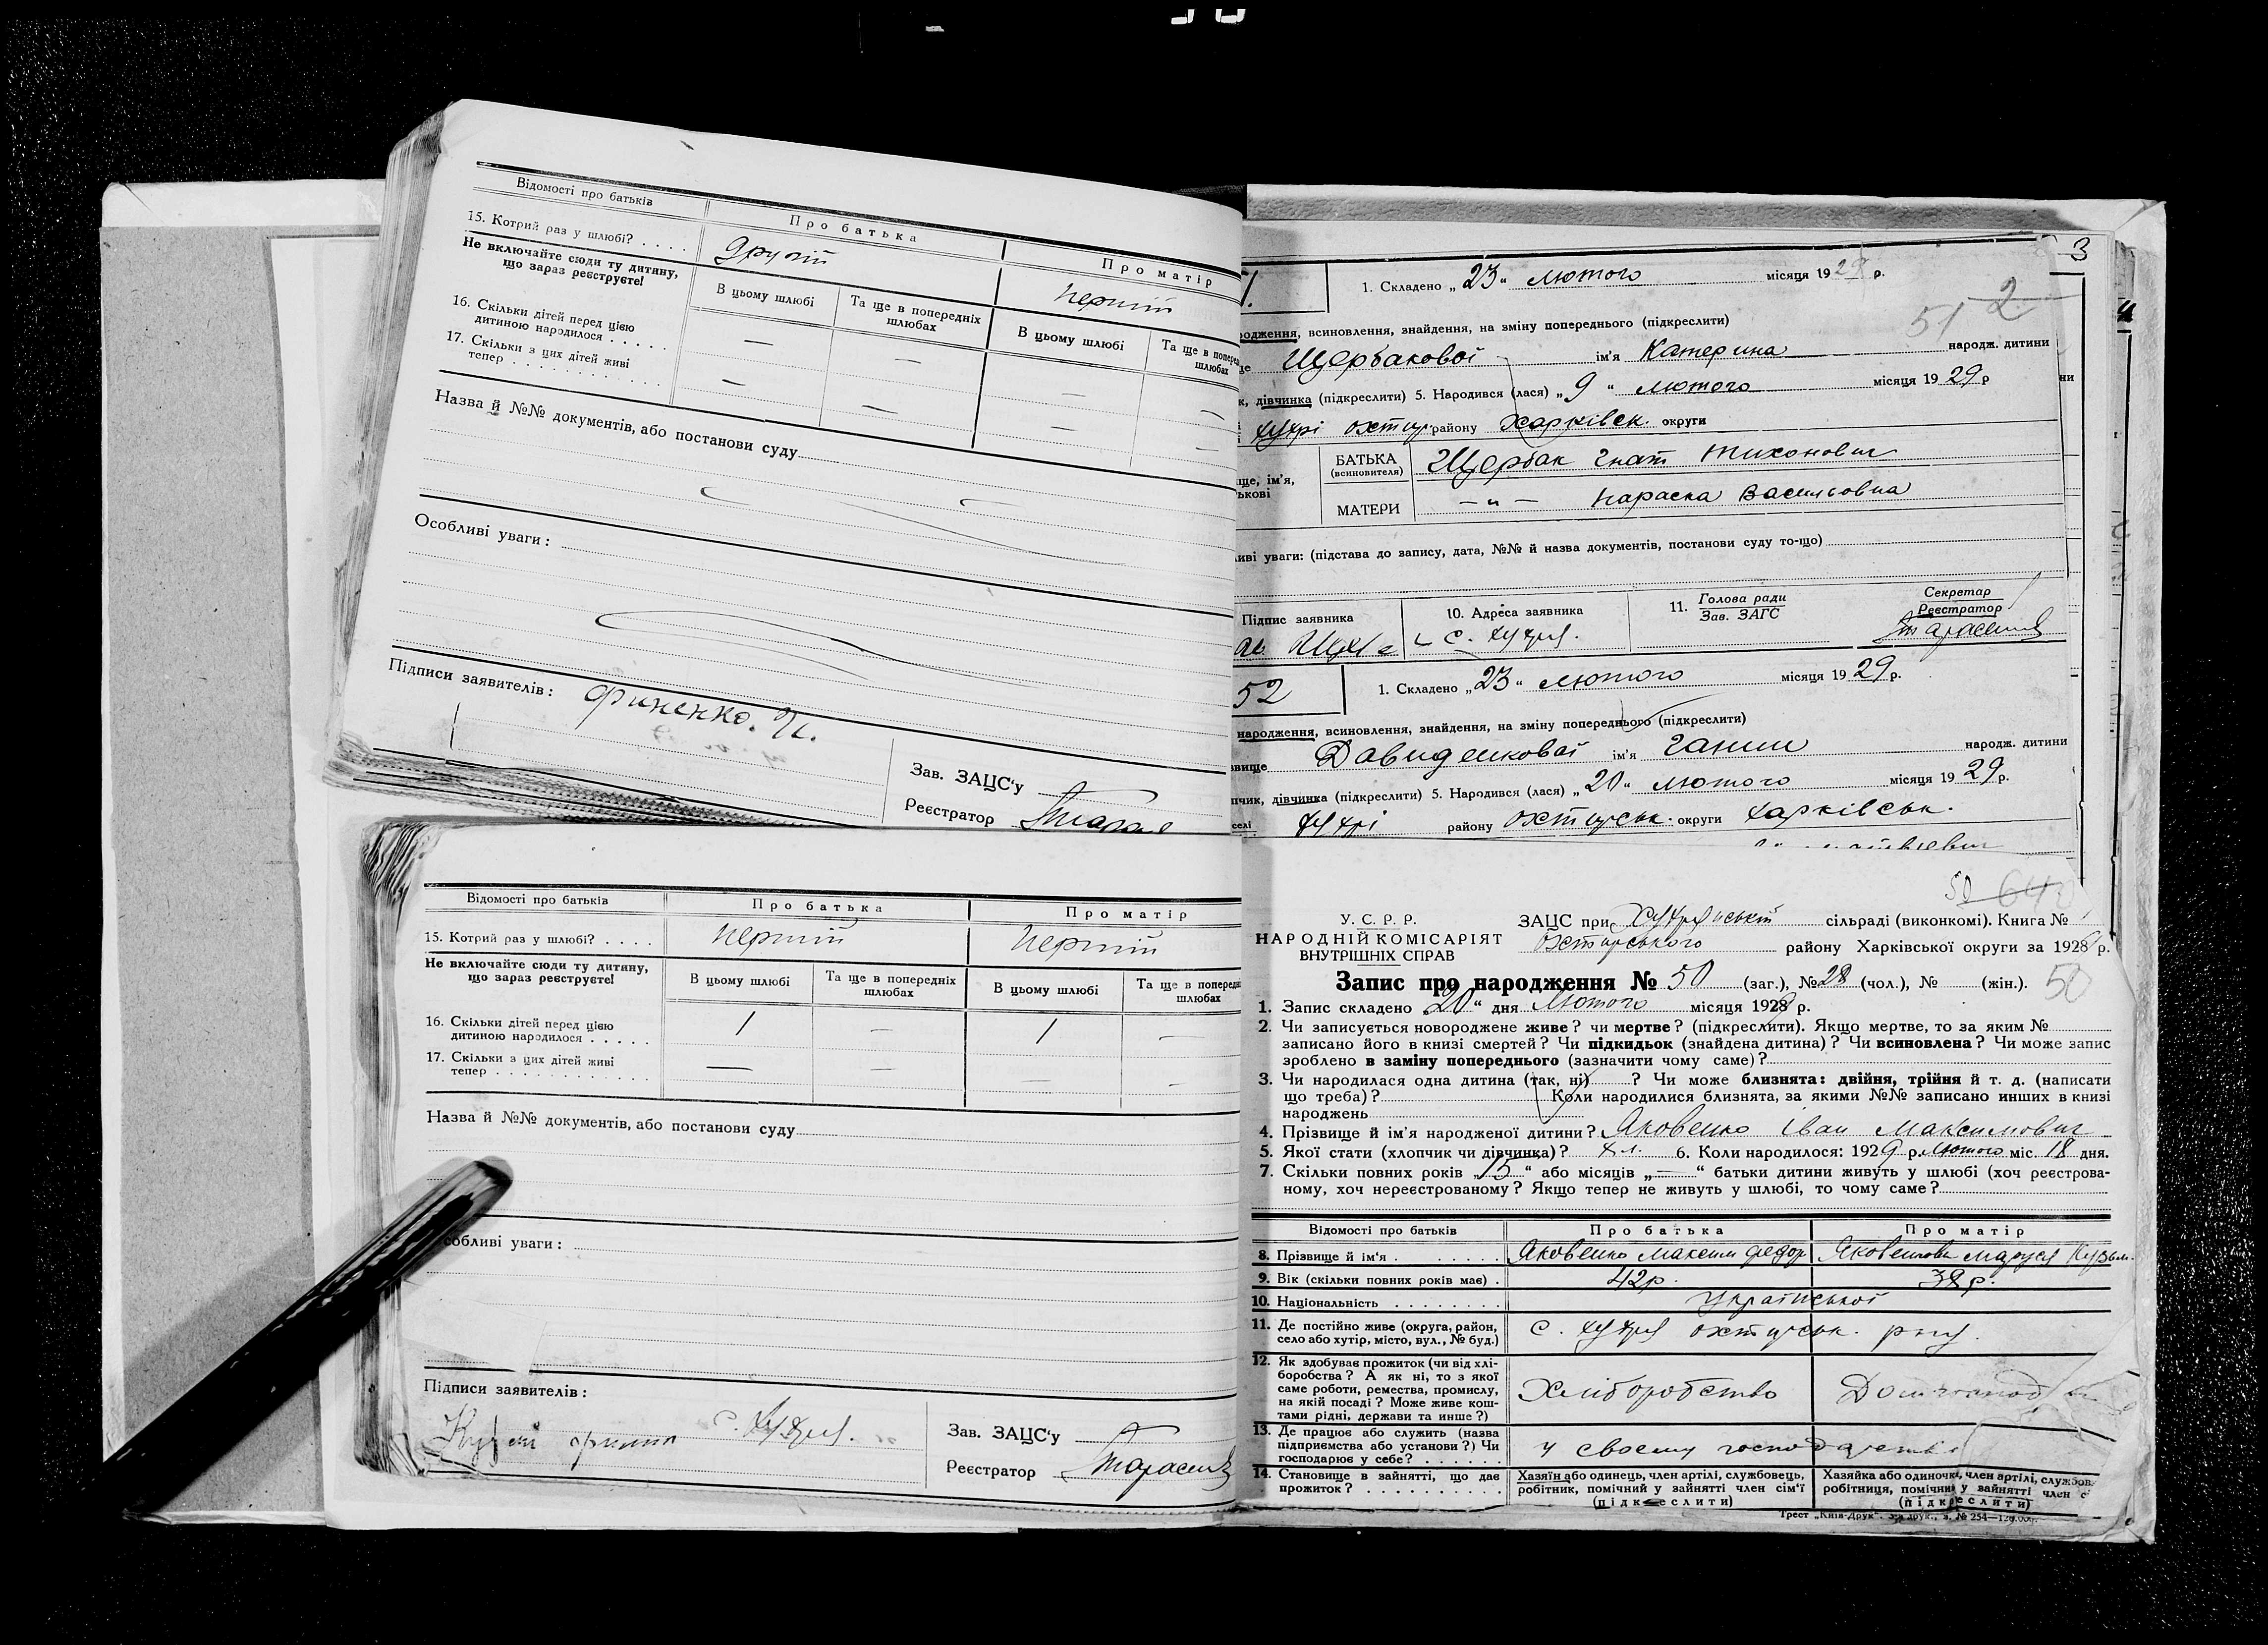 Відомості про батьків
Про батька
Про матір
15. Котрий раз у шлюбі? . . . .
другий
перший
Не включайте сюди ту дитину,
що зараз реєструєте!
В цьому шлюбі
Та ще в попередніх
шлюбах
В цьому шлюбі
Та ще в поперед
шлюбах
16. Скільки дітей перед цією
дитиною народилося . . . . .
— — — —
17. Скільки з цих дітей живі
тепер . . . . . . . . . . . .
— — — —
Назва й №№ документів, або постанови суду
Особливі уваги:
Підписи заявителів:
Зав. ЗАЦС'у
Реєстратор
Відомості про батьків
Про батька
Про матір
15. Котрий раз у шлюбі? . . . .
перший
перший
Не включайте сюди ту дитину,
що зараз реєструєте!
В цьому шлюбі
Та ще в попередніх
шлюбах
В цьому шлюбі
Та ще в поперед
шлюбах
16. Скільки дітей перед цією
дитиною народилося . . . . .
1 — 1 —
17. Скільки з цих дітей живі
тепер . . . . . . . . . . . .
— — — —
Назва й №№ документів, або постанови суду
собливі уваги:
Підписи заявителів:
Зав. ЗАЦС'у
Реєстратор
3
1. Складено „23" лютого місяця 1929 р.
51 2
одження, всиновлення, знайдення, на зміну попереднього (підкреслити)
Щербакової ім'я Катерина народж. дитини
к, дівчинка (підкреслити) 5. Народився (лася) „9" лютого місяця 1929 р
району Харківськ. округи
ще, ім'я,
ькові
БАТЬКА
(всиновителя)
Щербак Гнат Тихонович
МАТЕРИ
—„— Параска Васильовна
ливі уваги: (підстава до запису, дата, №№ й назва документів, постанови суду то-що)
Підпис заявника
10. Адреса заявника
11. Голова ради
Зав. ЗАГС
Секретар
Реєстратор
52
1. Складено „23" лютого місяця 1929 р.
народження, всиновлення, знайдення, на зміну попереднього (підкреслити)
звище Давиденкової ім'я Ганни народж. дитини
пчик, дівчинка (підкреслити) 5. Народився (лася) „20" лютого місяця 1929 р.
селі району округи Харківськ.
50 642
У. С. Р. Р.
НАРОДНІЙ КОМІСАРІЯТ
ВНУТРІШНІХ СПРАВ
ЗАЦС при сільраді (виконкомі). Книга №
району Харківської округи за 1928 р.
Запис про народження № 50 (заг.), № 28 (чол.), № (жін.). 50
1. Запис складено „20" дня Лютого місяця 1929 р.
2. Чи записується новороджене живе? чи мертве? (підкреслити). Якщо мертве, то за яким №
записано його в книзі смертей? Чи підкидьок (знайдена дитина)? Чи всиновлена? Чи може запис
зроблено в заміну попереднього (зазначити чому саме)?
3. Чи народилася одна дитина (так, ні) ? Чи може близнята: двійня, трійня й т. д. (написати
що треба)? Коли народилися близнята, за якими №№ записано инших в книзі
народжень
4. Прізвище й ім'я народженої дитини? Яковенко Іван Максимович
5. Якої стати (хлопчик чи дівчинка)? хл. 6. Коли народилося: 1929 р. Лютого міс. 18 дня.
7. Скільки повних років „15" або місяців „—" батьки дитини живуть у шлюбі (хоч реєстрова-
ному, хоч нереєстрованому? Якщо тепер не живуть у шлюбі, то чому саме?
Відомості про батьків
Про батька
Про матір
8. Прізвище й ім'я . . . . . .
Яковенко Максим Федор
Яковенкова Маруся Кузьм.
9. Вік (скільки повних років має) .
42 р.
38 р.
10. Національність . . . . . . . .
Української
11. Де постійно живе (округа, район,
село або хутір, місто, вул., № буд.)
12. Як здобуває прожиток (чи від хлі-
боробства? А як ні, то з якої
саме роботи, ремества, промислу,
на якій посаді? Може живе кош-
тами рідні, держави та инше?)
Хліборобство
13. Де працює або служить (назва
підприємства або установи?) Чи
господарює у себе? . . . . . .
у своему
14. Становище в зайнятті, що дає
прожиток? . . . . . . . . . .
Хазяїн або одинець, член артілі, службовець,
робітник, помічний у зайнятті член сім'ї
(підкреслити)
Хазяйка або одиночка, член артілі, службов.
робітниця, помічни у зайнятті член с
(підкреслити)
Трест „Київ-Друк".